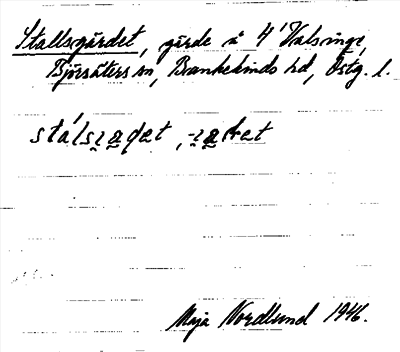 Stallsgärdet, gärde å 4 Valsinge,
Björsäters sn, Bankekinds hd, Östg. l.
stálsɿa̤det, -ɿa̤ket
Maja Nordlund 1946.